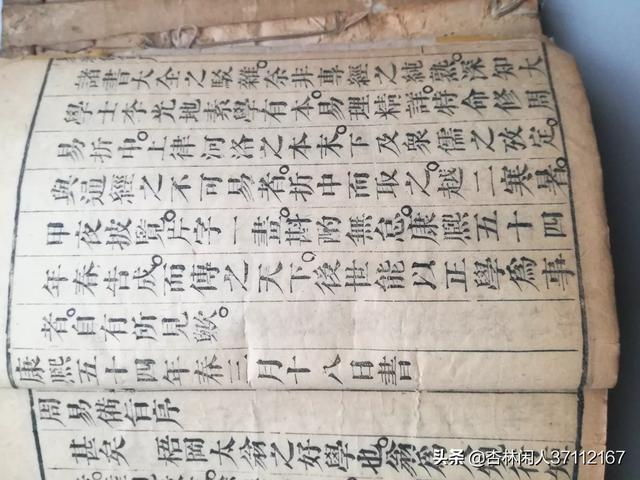 諸書大全之駁雜。奈非專經之純熟。深知大
學士李光地素學有本。易理精詳。特命修周
易折中。上律河洛之本末。下及衆儒之攷定。
與通經之不可易者。折中而取之。越二寒暑。
甲夜披覽。片字一畫。斟酌無怠。康熙五十四
年春告成。而傳之天下。後世能以正學爲事
者。自有所見歟。
康熙五十四年春三月十八日書
周易備旨序
甚矣 梧岡太翁之好學也。翁爲
头条 @杏林闲人37112167